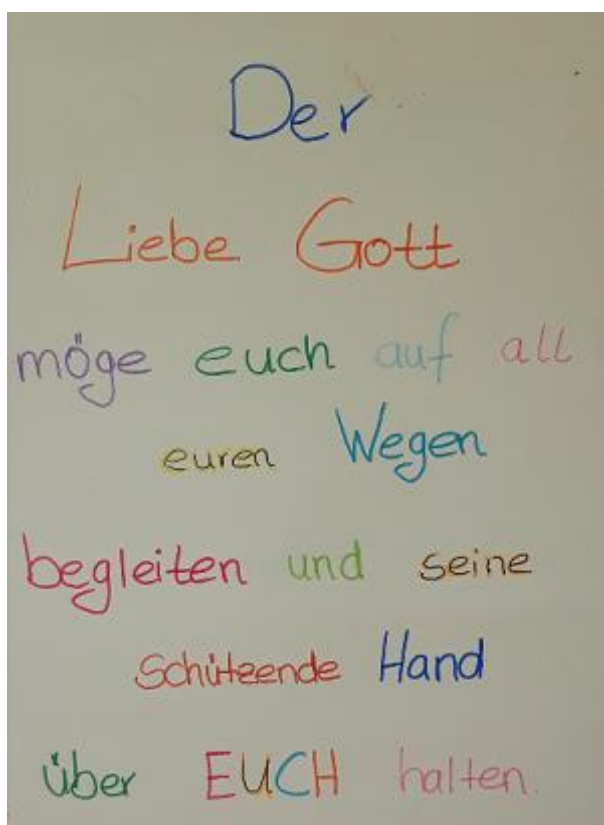 Der
Liebe Gott
möge euch auf all
euren Wegen
begleiten und seine
Schützende Hand
über EUCH halten.